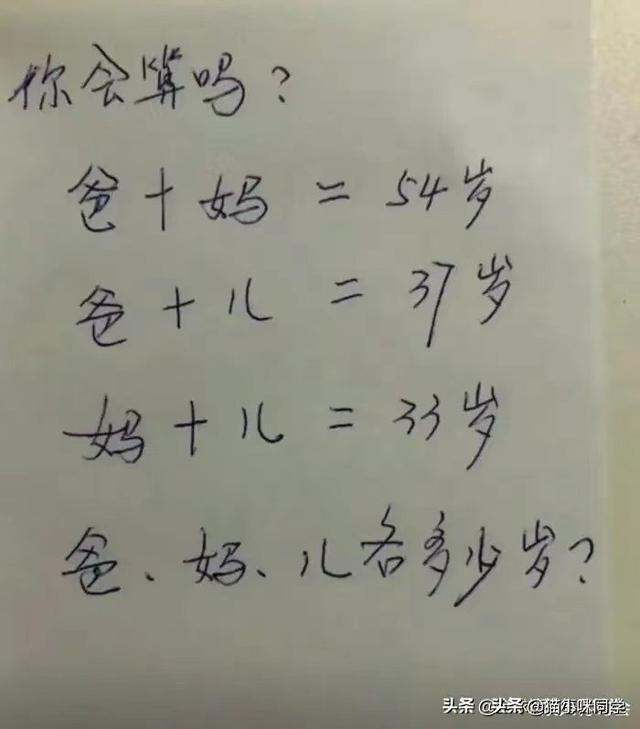 你会算吗？
爸+妈=54岁
爸+儿=37岁
妈+儿=33岁
爸、妈、儿各多少岁？
头条@猫尔咪同堂